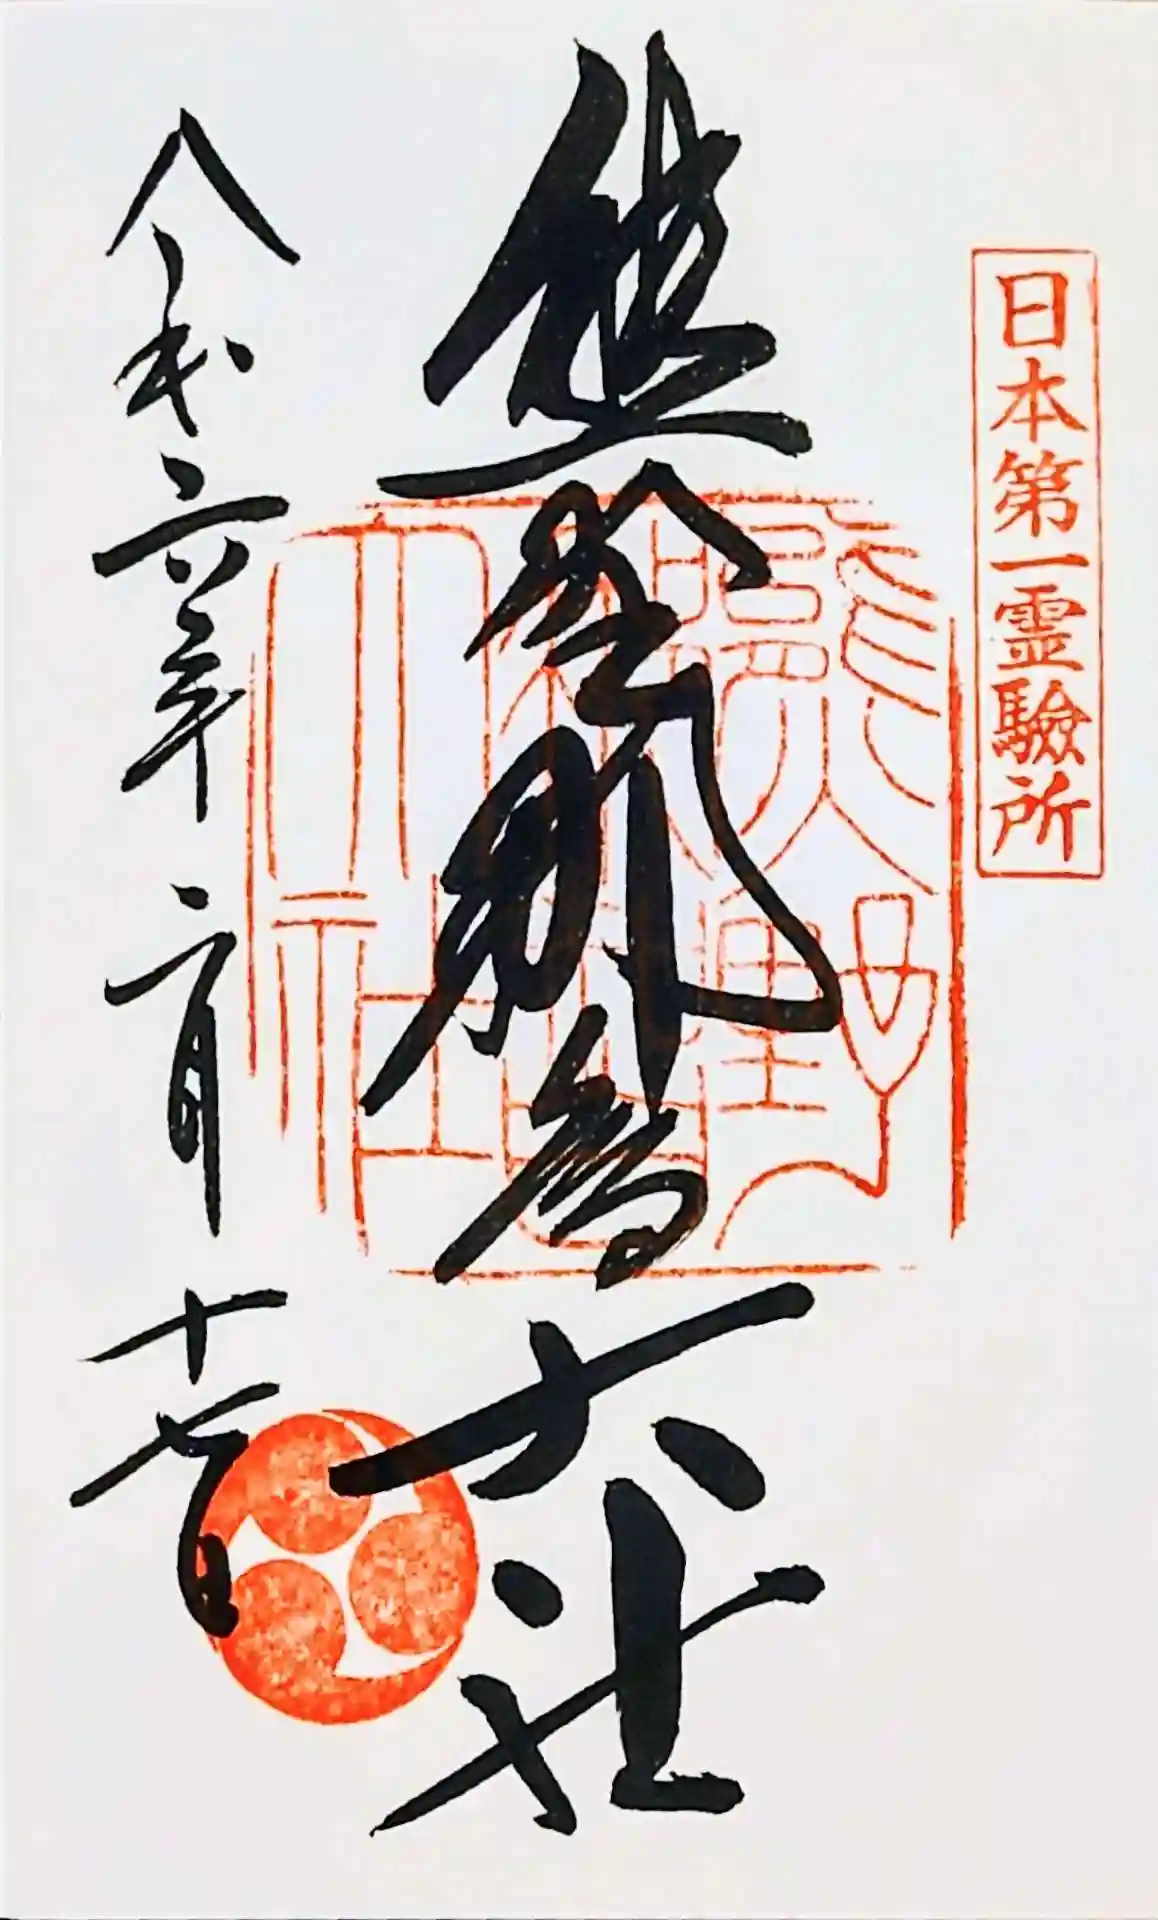 日本第一霊驗所
熊野那智大社
熊野
大社
令和六年二月十七日